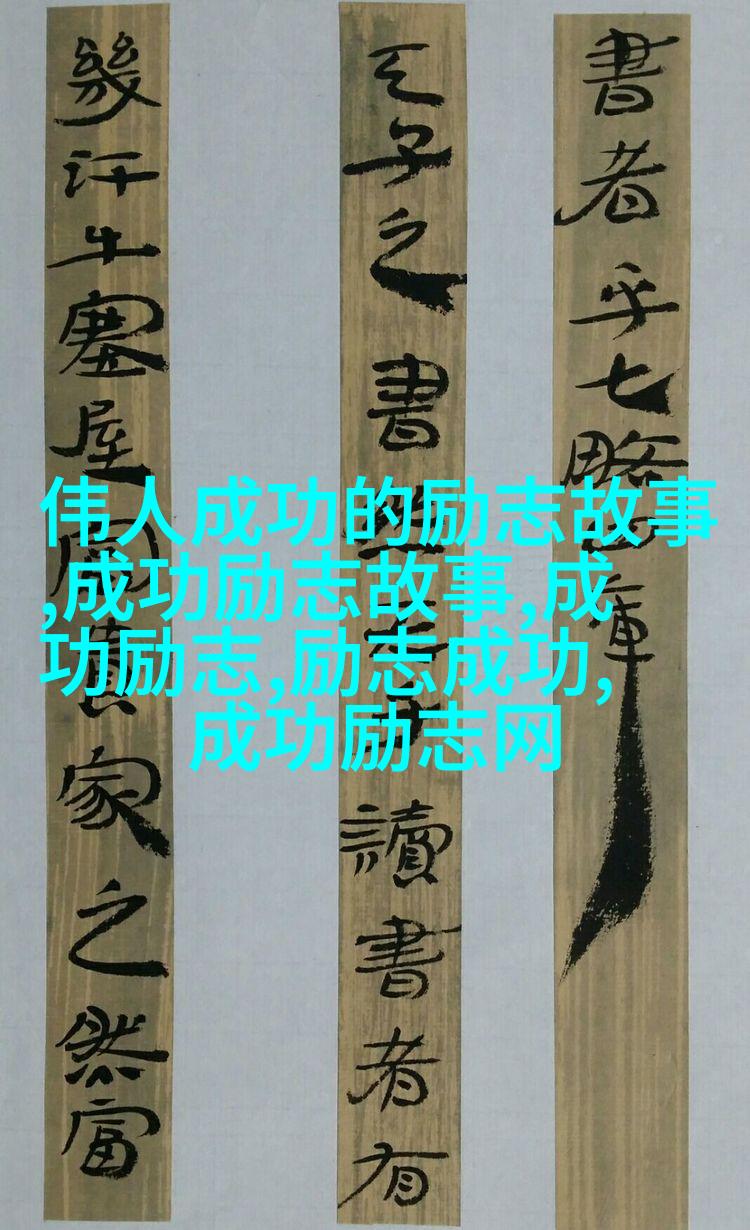 書者乎七略四庫
天子之書然天子讀書者有
幾汗牛塞屋富貴家之然富
伟人成功的励志故事
,成功励志故事,成
功励志,励志成功,
成功励志网